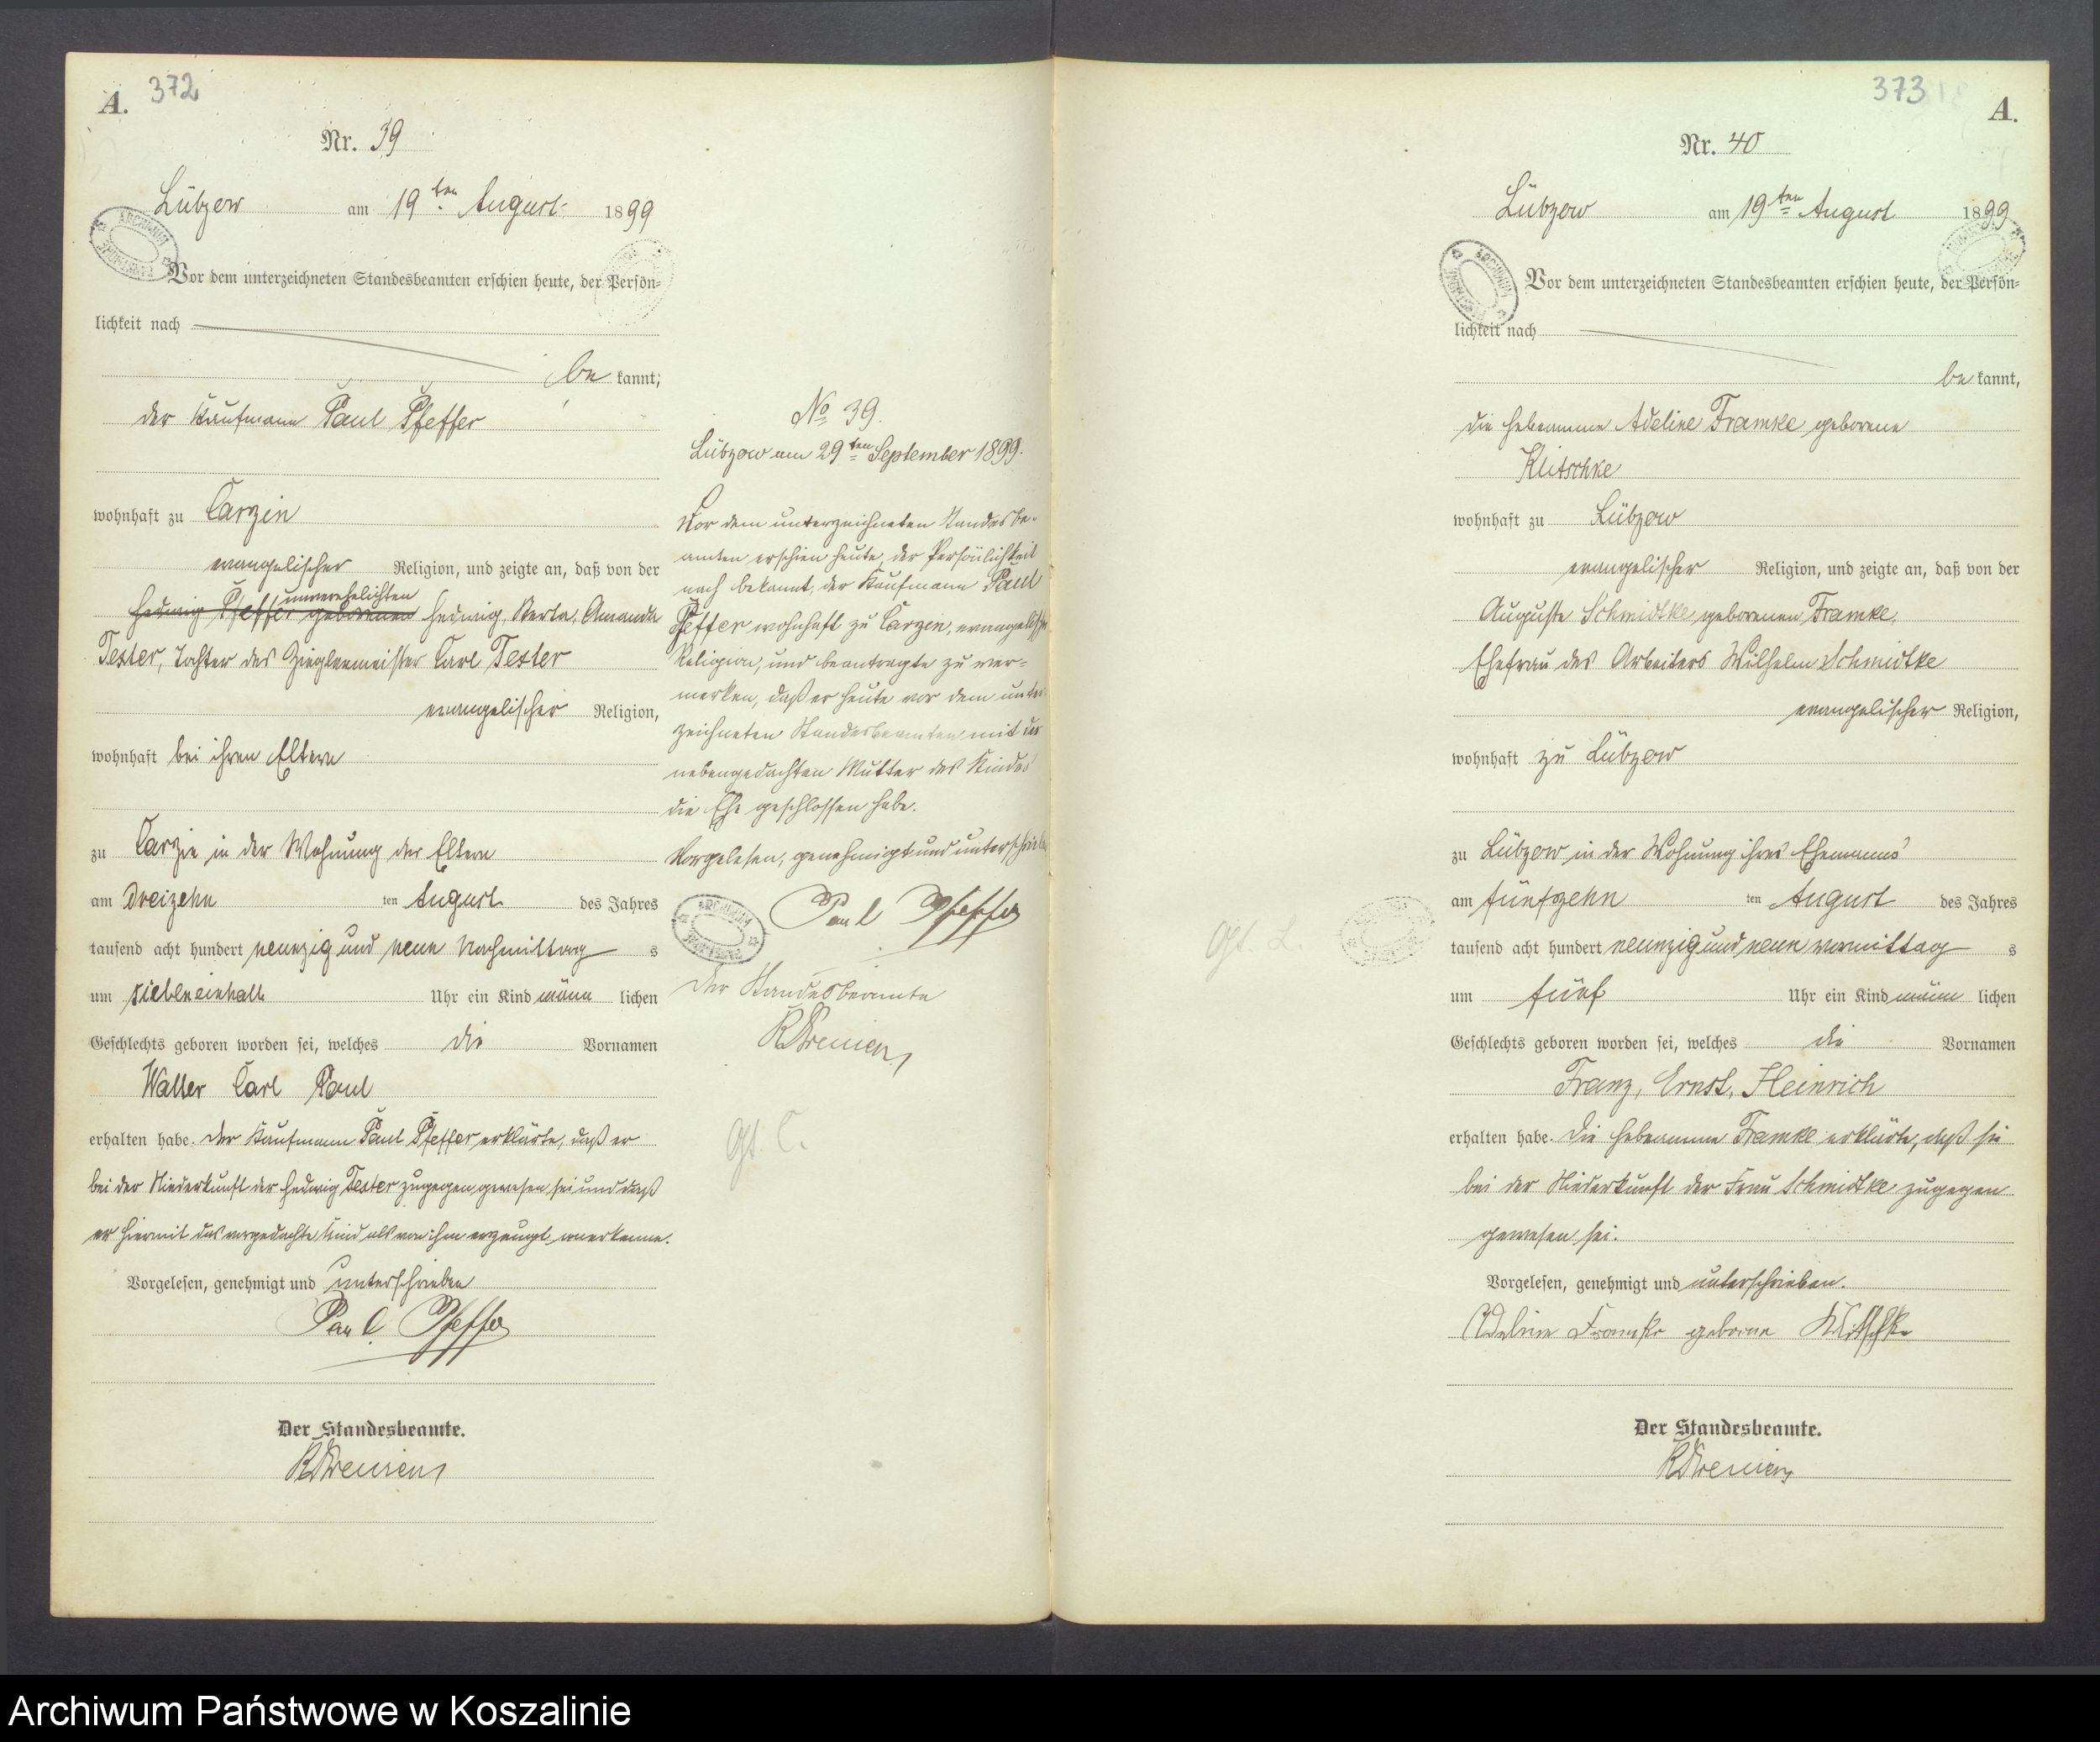 A. 372
Nr. 39
Lübzow am 19ten August 1899
Vor dem unterzeichneten Standesbeamten erschien heute, der Persön-
lichkeit nach
be kannt,
der Kaufmann Paul Pfeffer
wohnhaft zu Carzin
evangelischer Religion, und zeigte an, daß von der
unverehelichten
Hedwig Pfeffer geborenen Hedwig, Berta, Amanda
Tester, Tochter des Zieglermeister Carl Tester
evangelischer Religion,
wohnhaft bei ihren Eltern
zu Carzin in der Wohnung der Eltern
am Dreizehn ten August des Jahres
tausend acht hundert neunzig und neun Nachmittag s
um siebeneinhalb Uhr ein Kind männ lichen
Geschlechts geboren worden sei, welches die Vornamen
Walter Carl Paul
erhalten habe. Der Kaufmann Paul Pfeffer erklärte, daß er
bei der Niederkunft der Hedwig Tester zugegen gewesen sei und daß
er hiermit das vorgedachte Kind als von ihm erzeugt anerkenne.
Vorgelesen, genehmigt und unterschrieben
Paul Pfeffer
Der Standesbeamte.
No 39.
Lübzow am 29ten September 1899.
Vor dem unterzeichneten Standesbe-
amten erschien heute, der Persönlichkeit
nach bekannt, der Kaufmann Paul
Pfeffer wohnhaft zu Carzin, evangelischer
Religion, und beantragte zu ver-
merken, daß er heute vor dem unter
zeichneten Standesbeamten mit der
nebengedachten Mutter des Kindes
die Ehe geschlossen habe.
Vorgelesen, genehmigt und unterschrieben
Paul Pfeffer
ARCHIWUM
Der Standesbeamte
373 A.
Nr. 40
Lübzow am 19ten August 1899
Vor dem unterzeichneten Standesbeamten erschien heute, der Persön-
lichkeit nach
be kannt,
die Hebeamme Adeline Framke geborene
Klitschke
wohnhaft zu Lübzow
evangelischer Religion, und zeigte an, daß von der
Auguste Schmidtke geborenen Framke,
Ehefrau des Arbeiters Wilhelm Schmidtke
evangelischer Religion,
wohnhaft zu Lübzow
zu Lübzow in der Wohnung ihres Ehemanns
am fünfzehn ten August des Jahres
tausend acht hundert neunzig und neun vormittag s
um fünf Uhr ein Kind männ lichen
Geschlechts geboren worden sei, welches die Vornamen
Franz, Ernst, Heinrich
erhalten habe. Die Hebeamme Framke erklärte, daß sie
bei der Niederkunft der Frau Schmidtke zugegen
gewesen sei.
Vorgelesen, genehmigt und unterschrieben.
Adeline Framke geborne Klitschke
Der Standesbeamte.
Archiwum Państwowe w Koszalinie